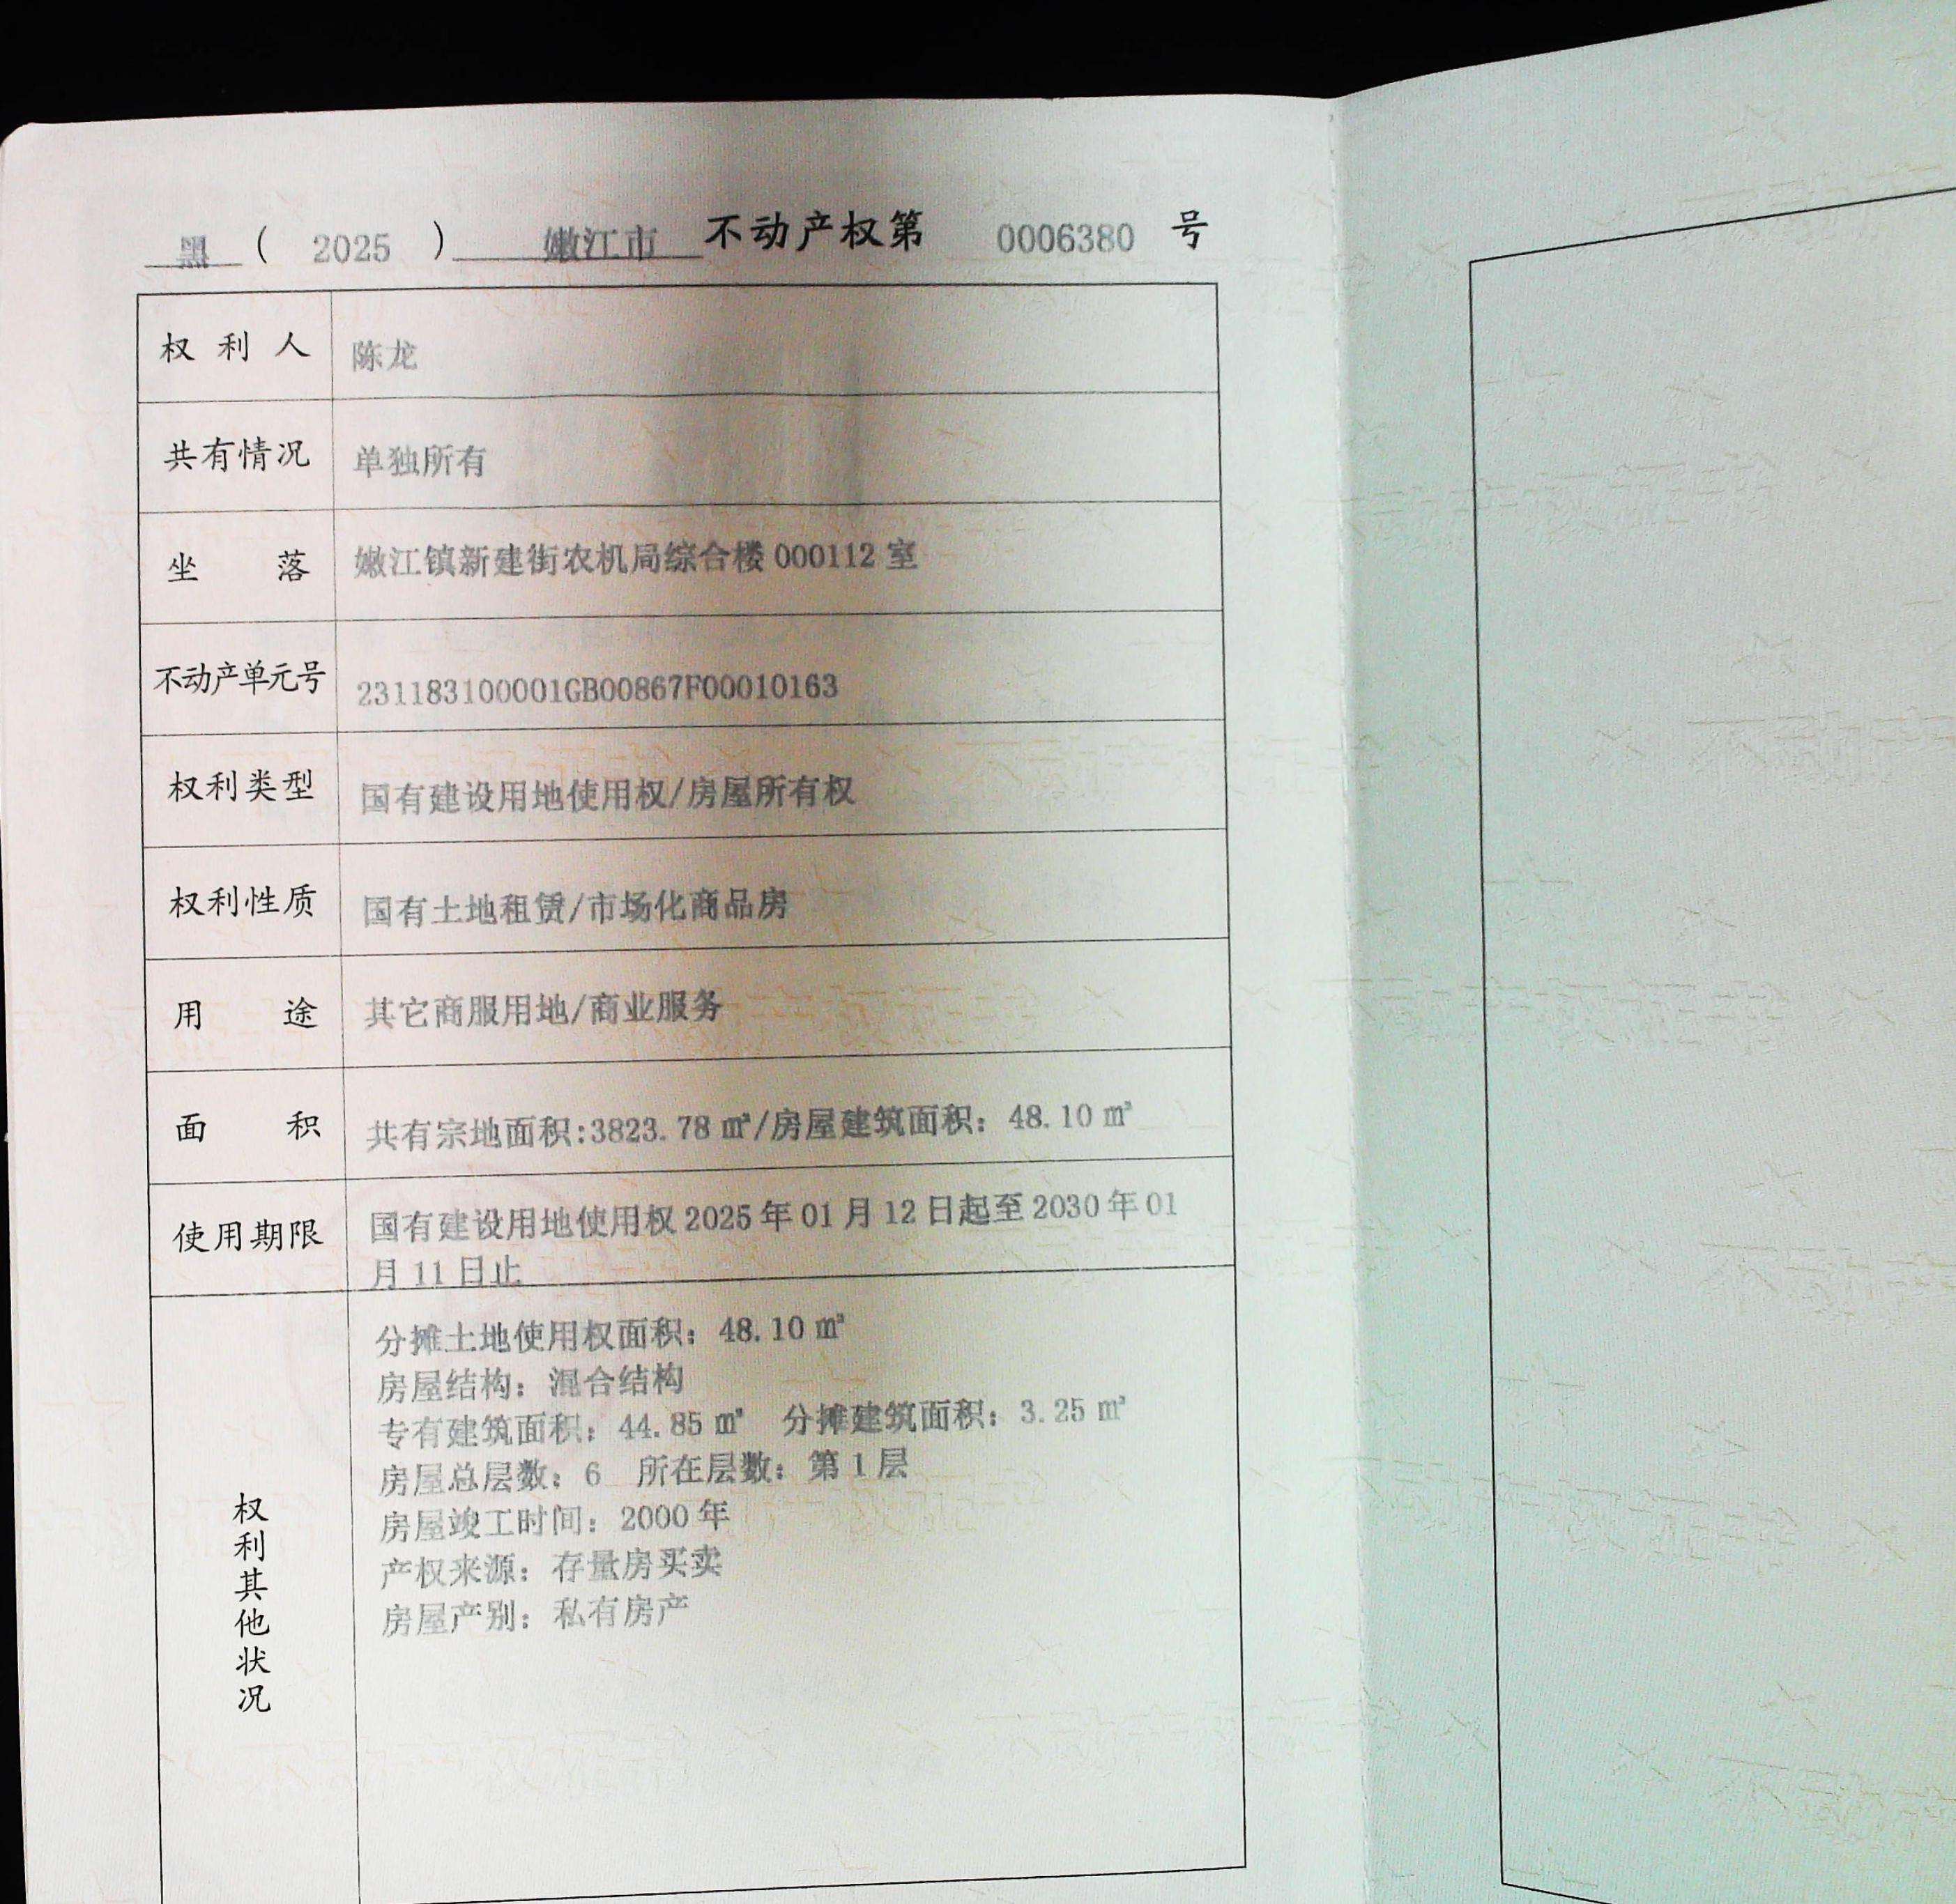 黑 （ 2025 ） 嫩江市 不动产权第 0006380 号
权利人 陈龙
共有情况 单独所有
坐落 嫩江镇新建街农机局综合楼 000112 室
不动产单元号 231183100001GB00867F00010163
权利类型 国有建设用地使用权/房屋所有权
权利性质 国有土地租赁/市场化商品房
用途 其它商服用地/商业服务
面积 共有宗地面积:3823.78 ㎡/房屋建筑面积：48.10 ㎡
使用期限 国有建设用地使用权 2025 年 01 月 12 日起至 2030 年 01
月 11 日止
权利其他状况
分摊土地使用权面积：48.10 ㎡
房屋结构：混合结构
专有建筑面积：44.85 ㎡ 分摊建筑面积：3.25 ㎡
房屋总层数：6 所在层数：第 1 层
房屋竣工时间：2000 年
产权来源：存量房买卖
房屋产别：私有房产